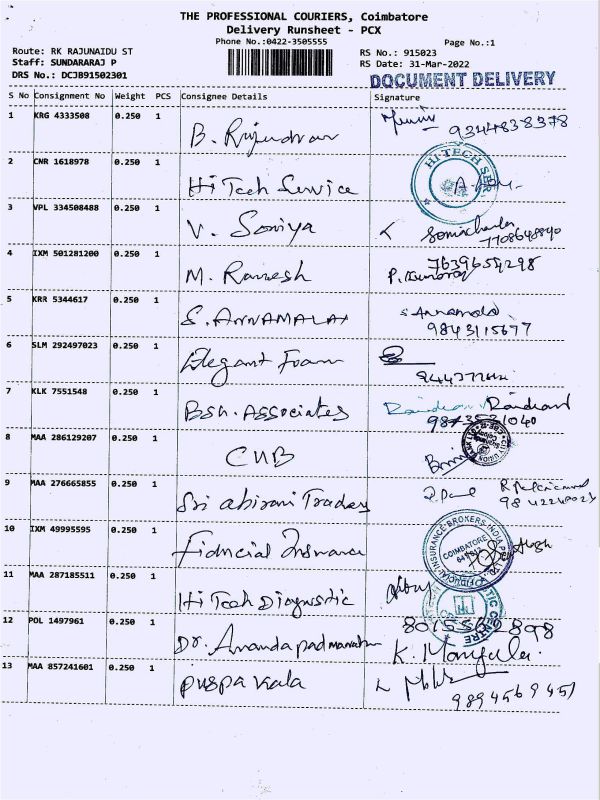 THE PROFESSIONAL COURIERS, Coimbatore
Delivery Runsheet - PCX
Phone No.:0422-3505555
Page No.:1
Route: RK RAJUNAIDU ST
RS No.: 915023
Staff: SUNDARARAJ P
RS Date: 31-Mar-2022
DRS No.: DCJB91502301
DOCUMENT DELIVERY
S No Consignment No Weight PCS Consignee Details Signature
1 KRG 4333508 0.250 1
B. Rajendran
9344838378
2 CNR 1618978 0.250 1
Hi Tech Service
HI TECH SER
3 VPL 334508488 0.250 1
V. Soniya
7708648840
4 IXM 501281200 0.250 1
M. Ramesh
7639654298
P. Kumaraj
5 KRR 5344617 0.250 1
S. ANNAMALAI
S. Annamalai
9843115677
6 SLM 292497023 0.250 1
Elegant Foam
7 KLK 7551548 0.250 1
Bsh. Associates
8 MAA 286129207 0.250 1
CUB
9 MAA 276665855 0.250 1
Sri abirami Traders
10 IXM 49995595 0.250 1
Fidncial Insurance
FIDUCIAL INSURANCE BROKERS INDIA
COIMBATORE
11 MAA 287185511 0.250 1
Hi Tech Diagnostic
12 POL 1497961 0.250 1
Dr. Anandapadmanabn
K. Manjula.
13 MAA 857241601 0.250 1
puspa kala
9894569451